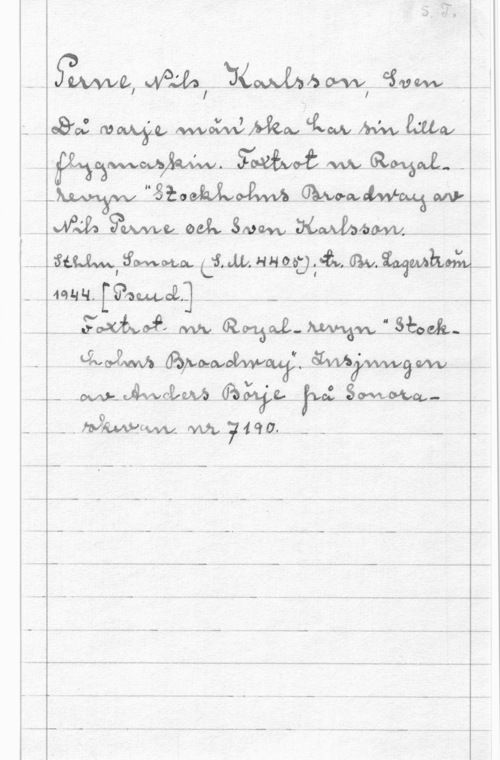 S. T.
Perne, Nils, Karlsson, Sven
Då varje män'ska har sin lilla
flygmaskin. Foxtrot ur Royal-
revyn "Stockholms Broadway av
Nils Perne och Sven Karlsson.
Sthlm, Sonora (S.M. 4405); tr. Br. Lagerström
1944. [Pseud.]
Foxtrot ur Royal-revyn "Stock-
holms Broadway". Insjungen
av Anders Börje på Sonora-
skivan nr 7190.